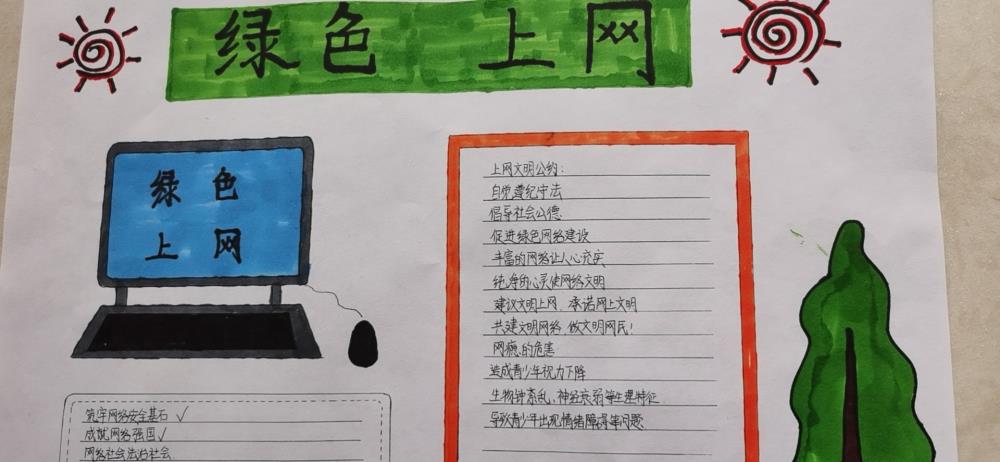 绿色 上网
绿色
上网
上网文明公约:
自觉遵纪守法
倡导社会公德
促进绿色网络建设
丰富的网络让人心充实
纯净的心灵使网络文明
建议文明上网、承诺网上文明
共建文明网络,做文明网民!
网瘾的危害
造成青少年视力下降
生物钟紊乱、神经衰弱等生理特征
导致青少年出现情绪障碍等问题
筑牢网络安全基石 ✓
成就网络强国✓
网络社会法治社会